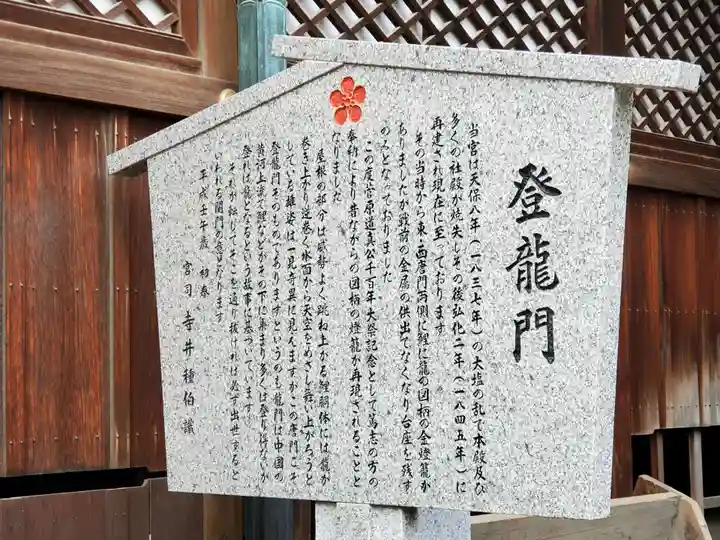 登龍門
当宮は天保八年(一八三七年)の大塩の乱で本殿及び
多くの社殿が焼失しその後弘化二年(一八四五年)に
再建され現在に至っております
その当時から東・西唐門両側に鯉に龍の図柄の金燈籠が
ありましたが戦前の金属の供出でなくなり台座を残す
のみとなっておりました
この度菅原道真公千百年大祭記念として篤志の方の
奉納により昔ながらの図柄の燈籠が再現されることと
なりました
屋根の部分は威勢よく跳ね上がる鯉胴体には龍が
巻き上がり逆巻く水面から天空をめざし舞い上がろうと
している雄姿は一見奇異に見えますがこの唐門こそ
登龍門そのものでありますというのも龍門は中国の
黄河上流で鯉などがその下に集まり多くは登り得ないが
登れば龍となるという故事に基づいています
それが転じてそこを通り抜ければ必ず出世すると
いわれる関門の意になります
平成壬午歳 初春
宮司 寺井種伯識